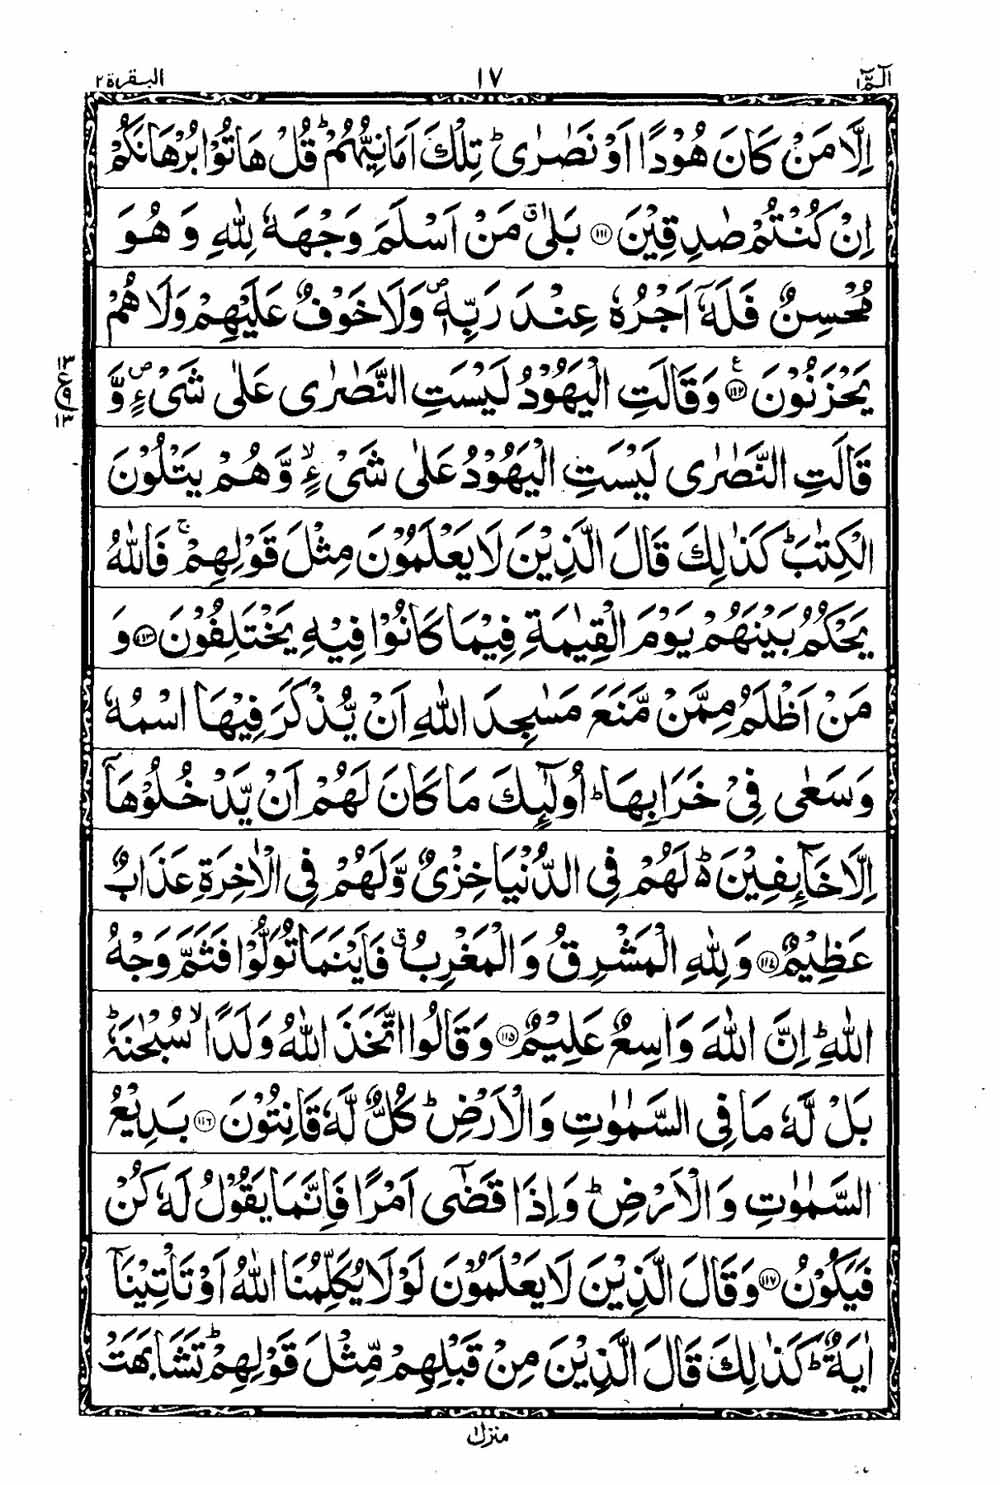 الٓمّٓ ١ ١٧ البقرة ٢
اِلَّا مَنْ كَانَ هُوْدًا اَوْ نَصٰرٰى ؕ تِلْكَ اَمَانِيُّهُمْ ؕ قُلْ هَاتُوْا بُرْهَانَكُمْ
اِنْ كُنْتُمْ صٰدِقِيْنَ ﴿۱۱۱﴾ بَلٰى ۗ مَنْ اَسْلَمَ وَجْهَهٗ لِلّٰهِ وَ هُوَ
مُحْسِنٌ فَلَهٗۤ اَجْرُهٗ عِنْدَ رَبِّهٖ ۪ وَلَا خَوْفٌ عَلَيْهِمْ وَلَا هُمْ
يَحْزَنُوْنَ ﴿۱۱۲﴾ ع وَقَالَتِ الْيَهُوْدُ لَيْسَتِ النَّصٰرٰى عَلٰى شَىْءٍ ۪ وَّ
١٣ ع ٩ ١٣
قَالَتِ النَّصٰرٰى لَيْسَتِ الْيَهُوْدُ عَلٰى شَىْءٍ ۙ وَّهُمْ يَتْلُوْنَ
الْكِتٰبَ ؕ كَذٰلِكَ قَالَ الَّذِيْنَ لَا يَعْلَمُوْنَ مِثْلَ قَوْلِهِمْ ۚ فَاللّٰهُ
يَحْكُمُ بَيْنَهُمْ يَوْمَ الْقِيٰمَةِ فِيْمَا كَانُوْا فِيْهِ يَخْتَلِفُوْنَ ﴿۱۱۳﴾ وَ
مَنْ اَظْلَمُ مِمَّنْ مَّنَعَ مَسٰجِدَ اللّٰهِ اَنْ يُّذْكَرَ فِيْهَا اسْمُهٗ
وَسَعٰى فِىْ خَرَابِهَا ؕ اُولٰٓئِكَ مَا كَانَ لَهُمْ اَنْ يَّدْخُلُوْهَاۤ
اِلَّا خَآئِفِيْنَ ؕ لَهُمْ فِى الدُّنْيَا خِزْىٌ وَّلَهُمْ فِى الْاٰخِرَةِ عَذَابٌ
عَظِيْمٌ ﴿۱۱۴﴾ وَلِلّٰهِ الْمَشْرِقُ وَالْمَغْرِبُ ۗ فَاَيْنَمَا تُوَلُّوْا فَثَمَّ وَجْهُ
اللّٰهِ ؕ اِنَّ اللّٰهَ وَاسِعٌ عَلِيْمٌ ﴿۱۱۵﴾ وَقَالُوا اتَّخَذَ اللّٰهُ وَلَدًا ۙ سُبْحٰنَهٗ ؕ
بَلْ لَّهٗ مَا فِى السَّمٰوٰتِ وَالْاَرْضِ ؕ كُلٌّ لَّهٗ قَانِتُوْنَ ﴿۱۱۶﴾ بَدِيْعُ
السَّمٰوٰتِ وَالْاَرْضِ ؕ وَاِذَا قَضٰٓى اَمْرًا فَاِنَّمَا يَقُوْلُ لَهٗ كُنْ
فَيَكُوْنُ ﴿۱۱۷﴾ وَقَالَ الَّذِيْنَ لَا يَعْلَمُوْنَ لَوْلَا يُكَلِّمُنَا اللّٰهُ اَوْ تَاْتِيْنَاۤ
اٰيَةٌ ؕ كَذٰلِكَ قَالَ الَّذِيْنَ مِنْ قَبْلِهِمْ مِّثْلَ قَوْلِهِمْ ؕ تَشَابَهَتْ
منزل ١